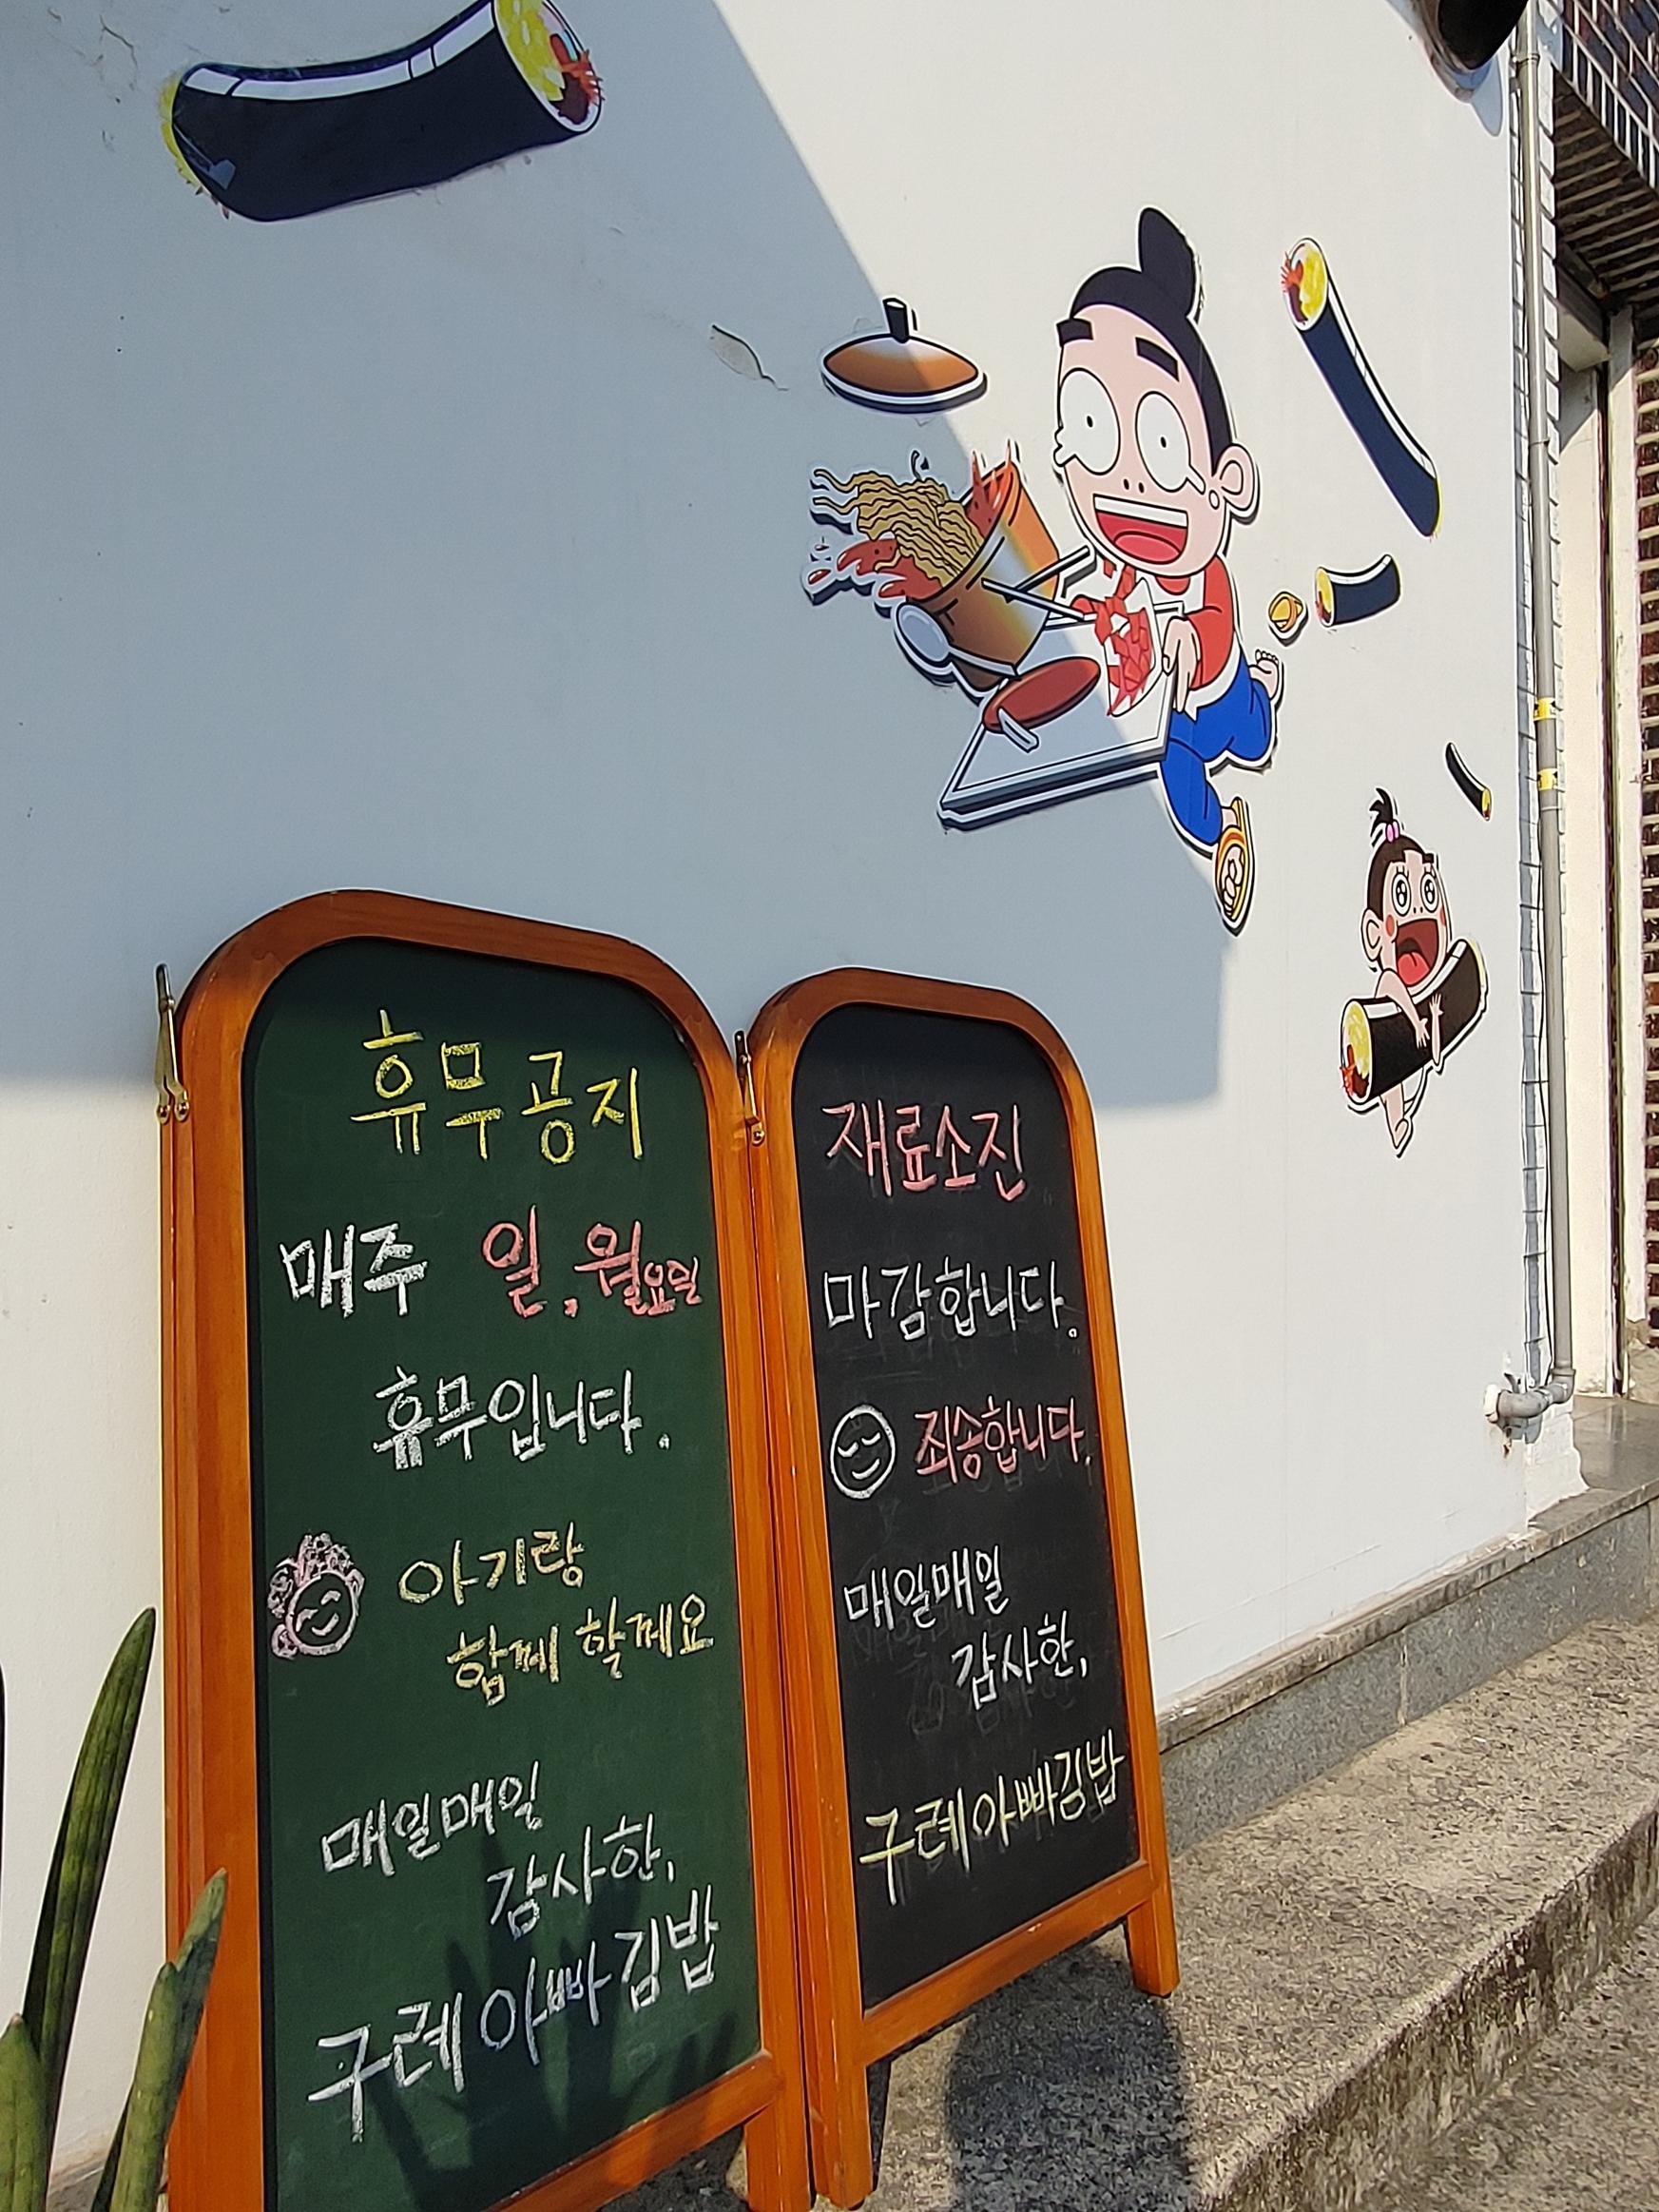 휴무공지
매주 일, 월요일
휴무입니다.
아기랑
함께 할께요
매일매일
감사한,
구례 아빠김밥
재료소진
마감합니다.
죄송합니다.
매일매일
감사한,
구례아빠김밥